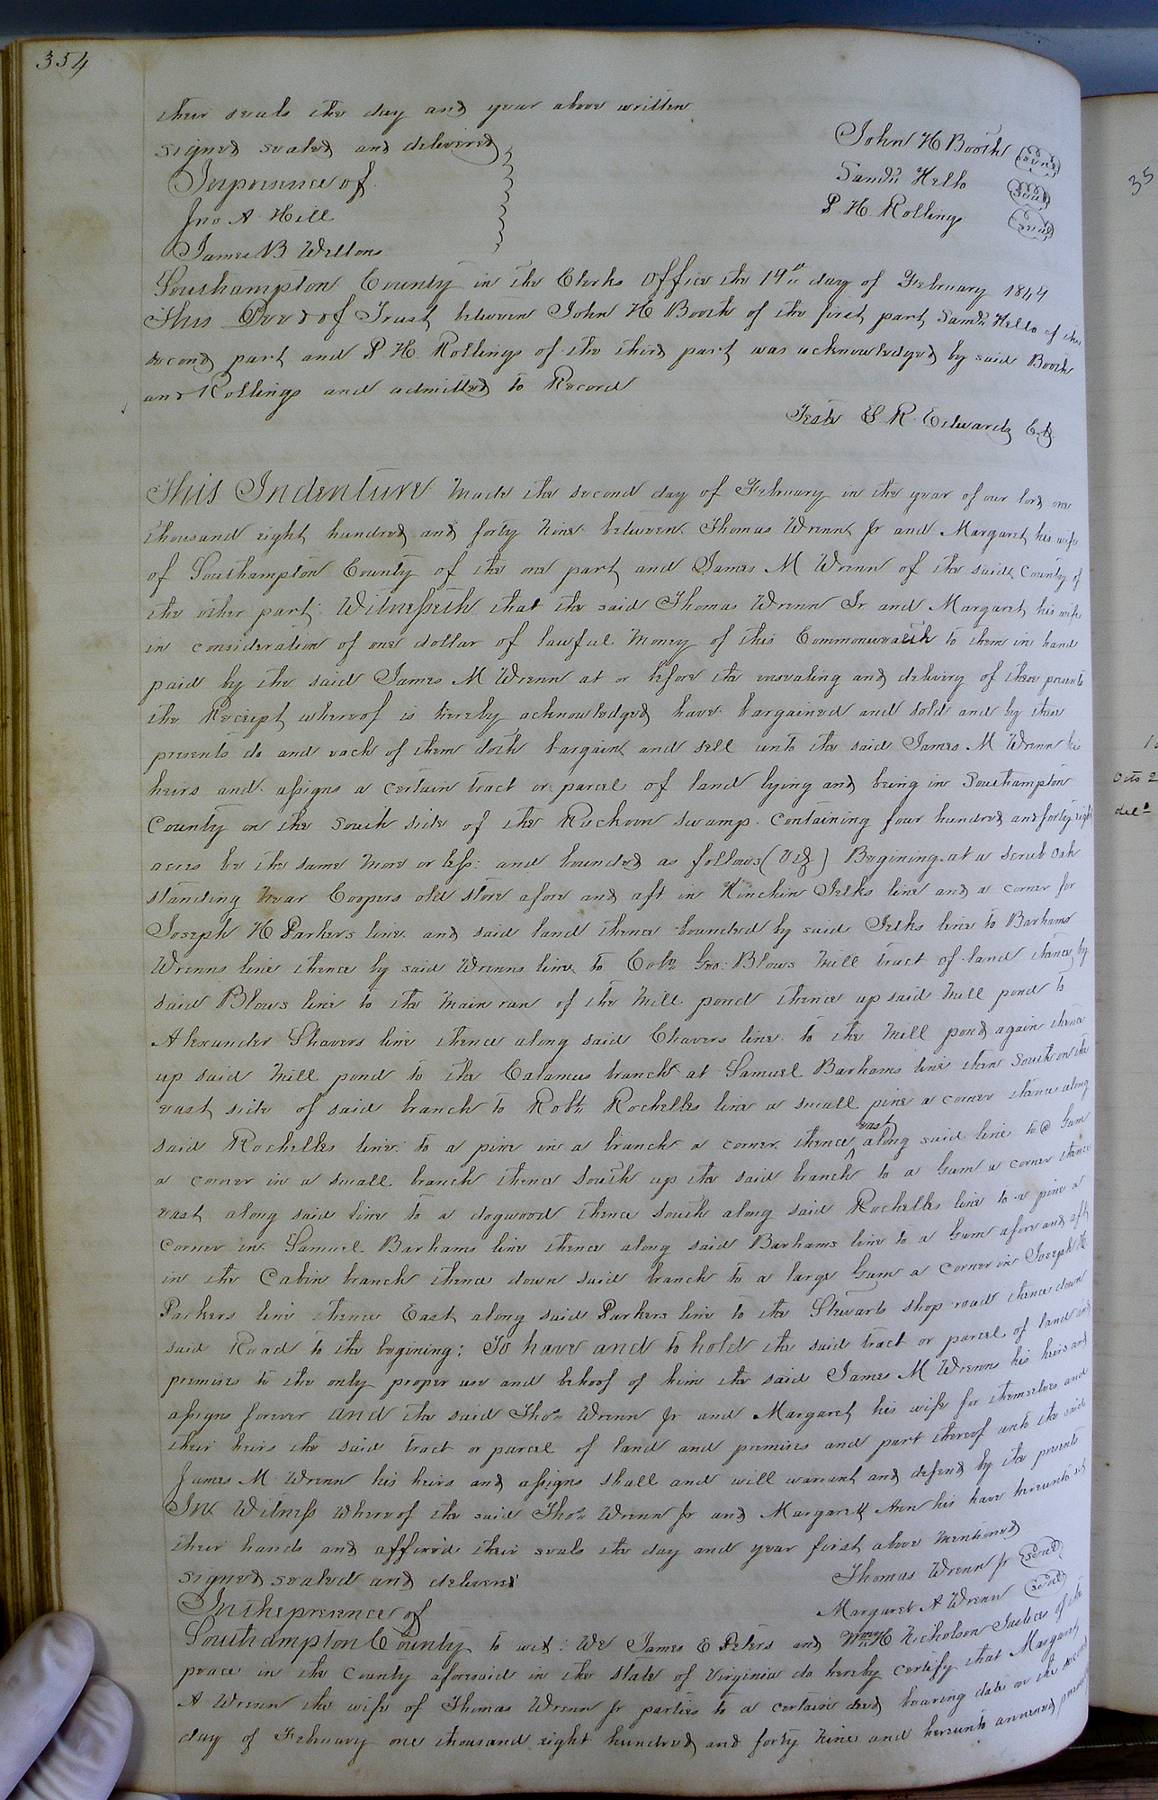 354
their seals the day and year above written
signed sealed and delivered
In presence of
Jno A Hill
James B Wellons
John H Booth Seal
Saml Kello Seal
P H Rollings Seal
Southampton County in the Clerks office the 19th day of February 1849
This Deed of Trust between John H Booth of the first part Saml Kello of the
second part and P H Rollings of the third part was acknowledged by said Booth
and Rollings and admitted to Record
Teste L R Edwards Clk
This Indenture made the second day of February in the year of our lord one
thousand eight hundred and forty nine between Thomas Wrenn Jr and Margaret his wife
of Southampton County of the one part and James M Wrenn of the said County of
the other part: Witnesseth that the said Thomas Wrenn Jr and Margaret his wife
in consideration of one dollar of lawful money of this Commonwealth to them in hand
paid by the said James M Wrenn at or before the ensealing and delivery of these presents
the Receipt whereof is hereby acknowledged have bargained and sold and by these
presents do and each of them doth bargain and sell unto the said James M Wrenn his
heirs and assigns a certain tract or parcel of land lying and being in Southampton
County on the South side of the Rackoon swamp containing four hundred and forty eight
acres be the same more or less: and bounded as follows (Viz) Begining at a Scrub Oak
standing near Coopers old store afore and aft in Kinchin Jelks line and a corner for
Joseph H Parkers line and said land thence bounded by said Jelks line to Barhams
Wrenns line thence by said Wrenns line to Colo Geo: Blows mill tract of land thence by
said Blows line to the main run of the mill pond thence up said mill pond to
Alexander Chavers line thence along said Chavers line to the mill pond again thence
up said mill pond to the Calamus branch at Samuel Barhams line then South on the
east side of said branch to Robt Rochelles line a small pine a corner thence along
said Rochelles line to a pine in a branch a corner thence east along said line to a Gum
a corner in a small branch thence South up the said branch to a Gum a corner thence
east along said line to a dogwood thence South along said Rochelles line to a pine a
corner in Samuel Barhams line thence along said Barhams line to a Gum afore and aft
in the Cabin branch thence down said branch to a large Gum a corner in Joseph H
Parkers line thence East along said Parkers line to the Stewarts shop road thence down
said Road to the begining: To have and to hold the said tract or parcel of land and
premises to the only proper use and behoof of him the said James M Wrenns his heirs and
assigns forever and the said Thos Wrenn Jr and Margaret his wife for themselves and
their heirs the said tract or parcel of land and premises and part thereof unto the said
James M Wrenn his heirs and assigns shall and will warrant and defend by the presents
In Witness whereof the said Thos Wrenn Jr and Margarett Ann his have hereunto set
their hands and affixed their seals the day and year first above mentioned
signed sealed and delivered
In the presence of
Thomas Wrenn Jr Seal
Margaret A Wrenn Seal
Southampton County to wit: We James E Peters and Wm H Nicholson Justices of the
peace in the County aforesaid in the State of Virginia do hereby certify that Margaret
A Wrenn the wife of Thomas Wrenn Jr parties to a certain deed bearing date on the second
day of February one thousand eight hundred and forty nine and hereunto annexed
35